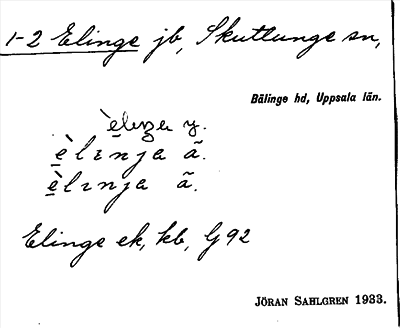 1-2 Elinge jb, Skuttunge sn,
Bälinge hd, Uppsala län.
y.
è̱lınja ã.
è̱lınja ã.
Elinge ek, kb, G92
JÖRAN SAHLGREN 1933.